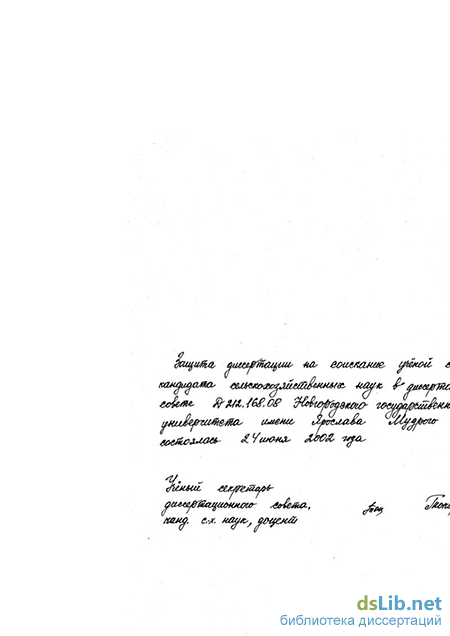 Защита диссертации на соискание учёной с
кандидата сельскохозяйственных наук в диссерта
совете Д 212.168.08 Новгородского государственн
университета имени Ярослава Мудрого
состоялась 24 июня 2002 года
Учёный секретарь
диссертационного совета,
канд. с.х. наук, доцент
dsLib.net
библиотека диссертаций